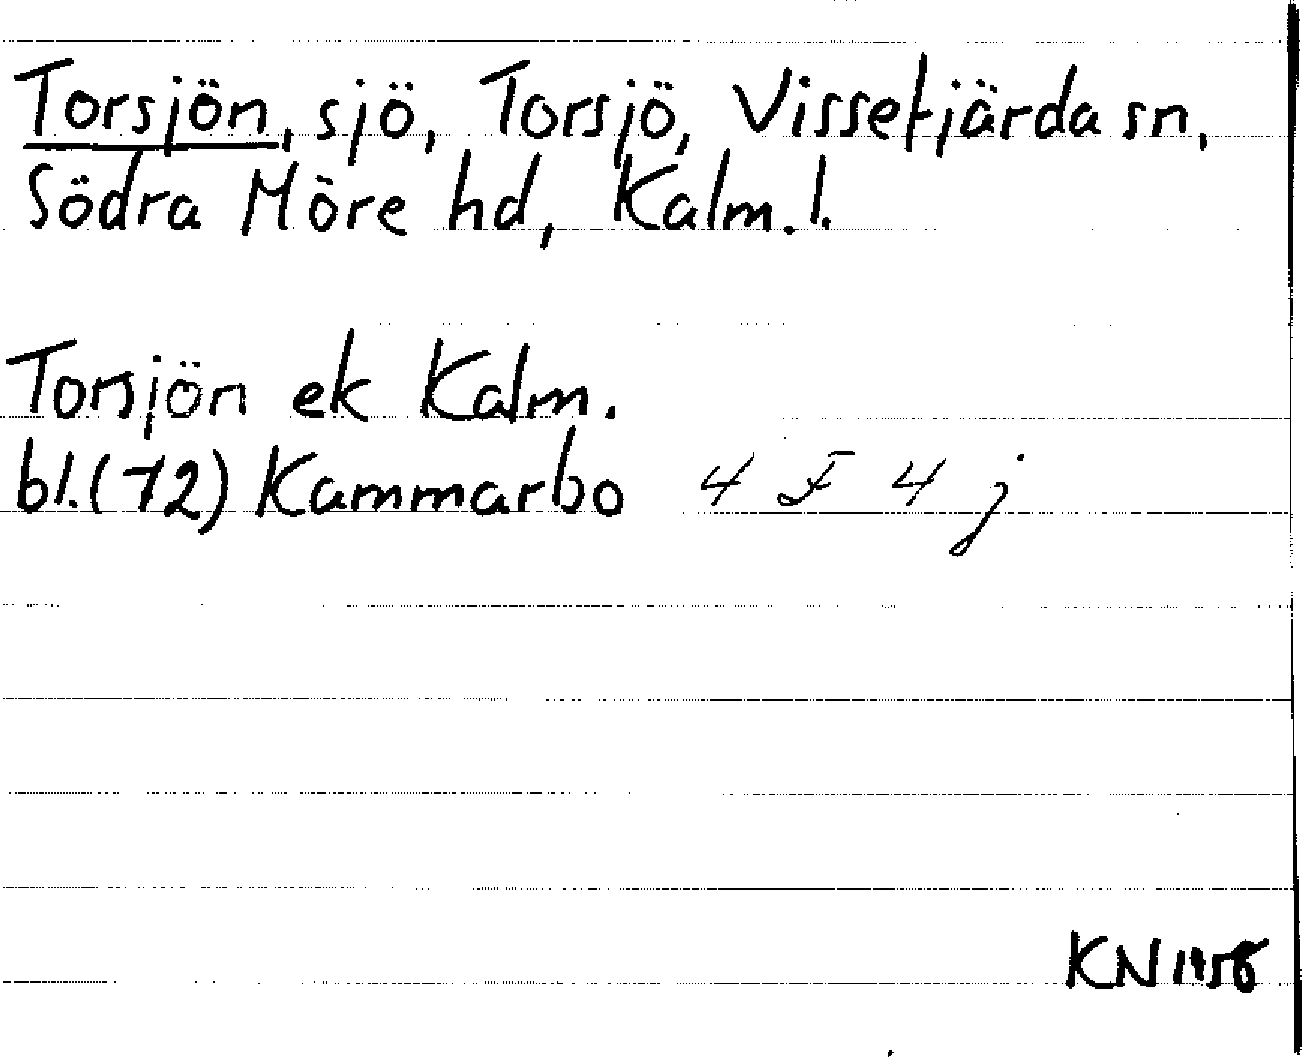 Torsjön, sjö, Torsjö, Vissefjärda sn,
Södra Möre hd, Kalm. l.
Torsjön ek Kalm.
bl. (72) Kammarbo 4 F 4 j
KN 1958